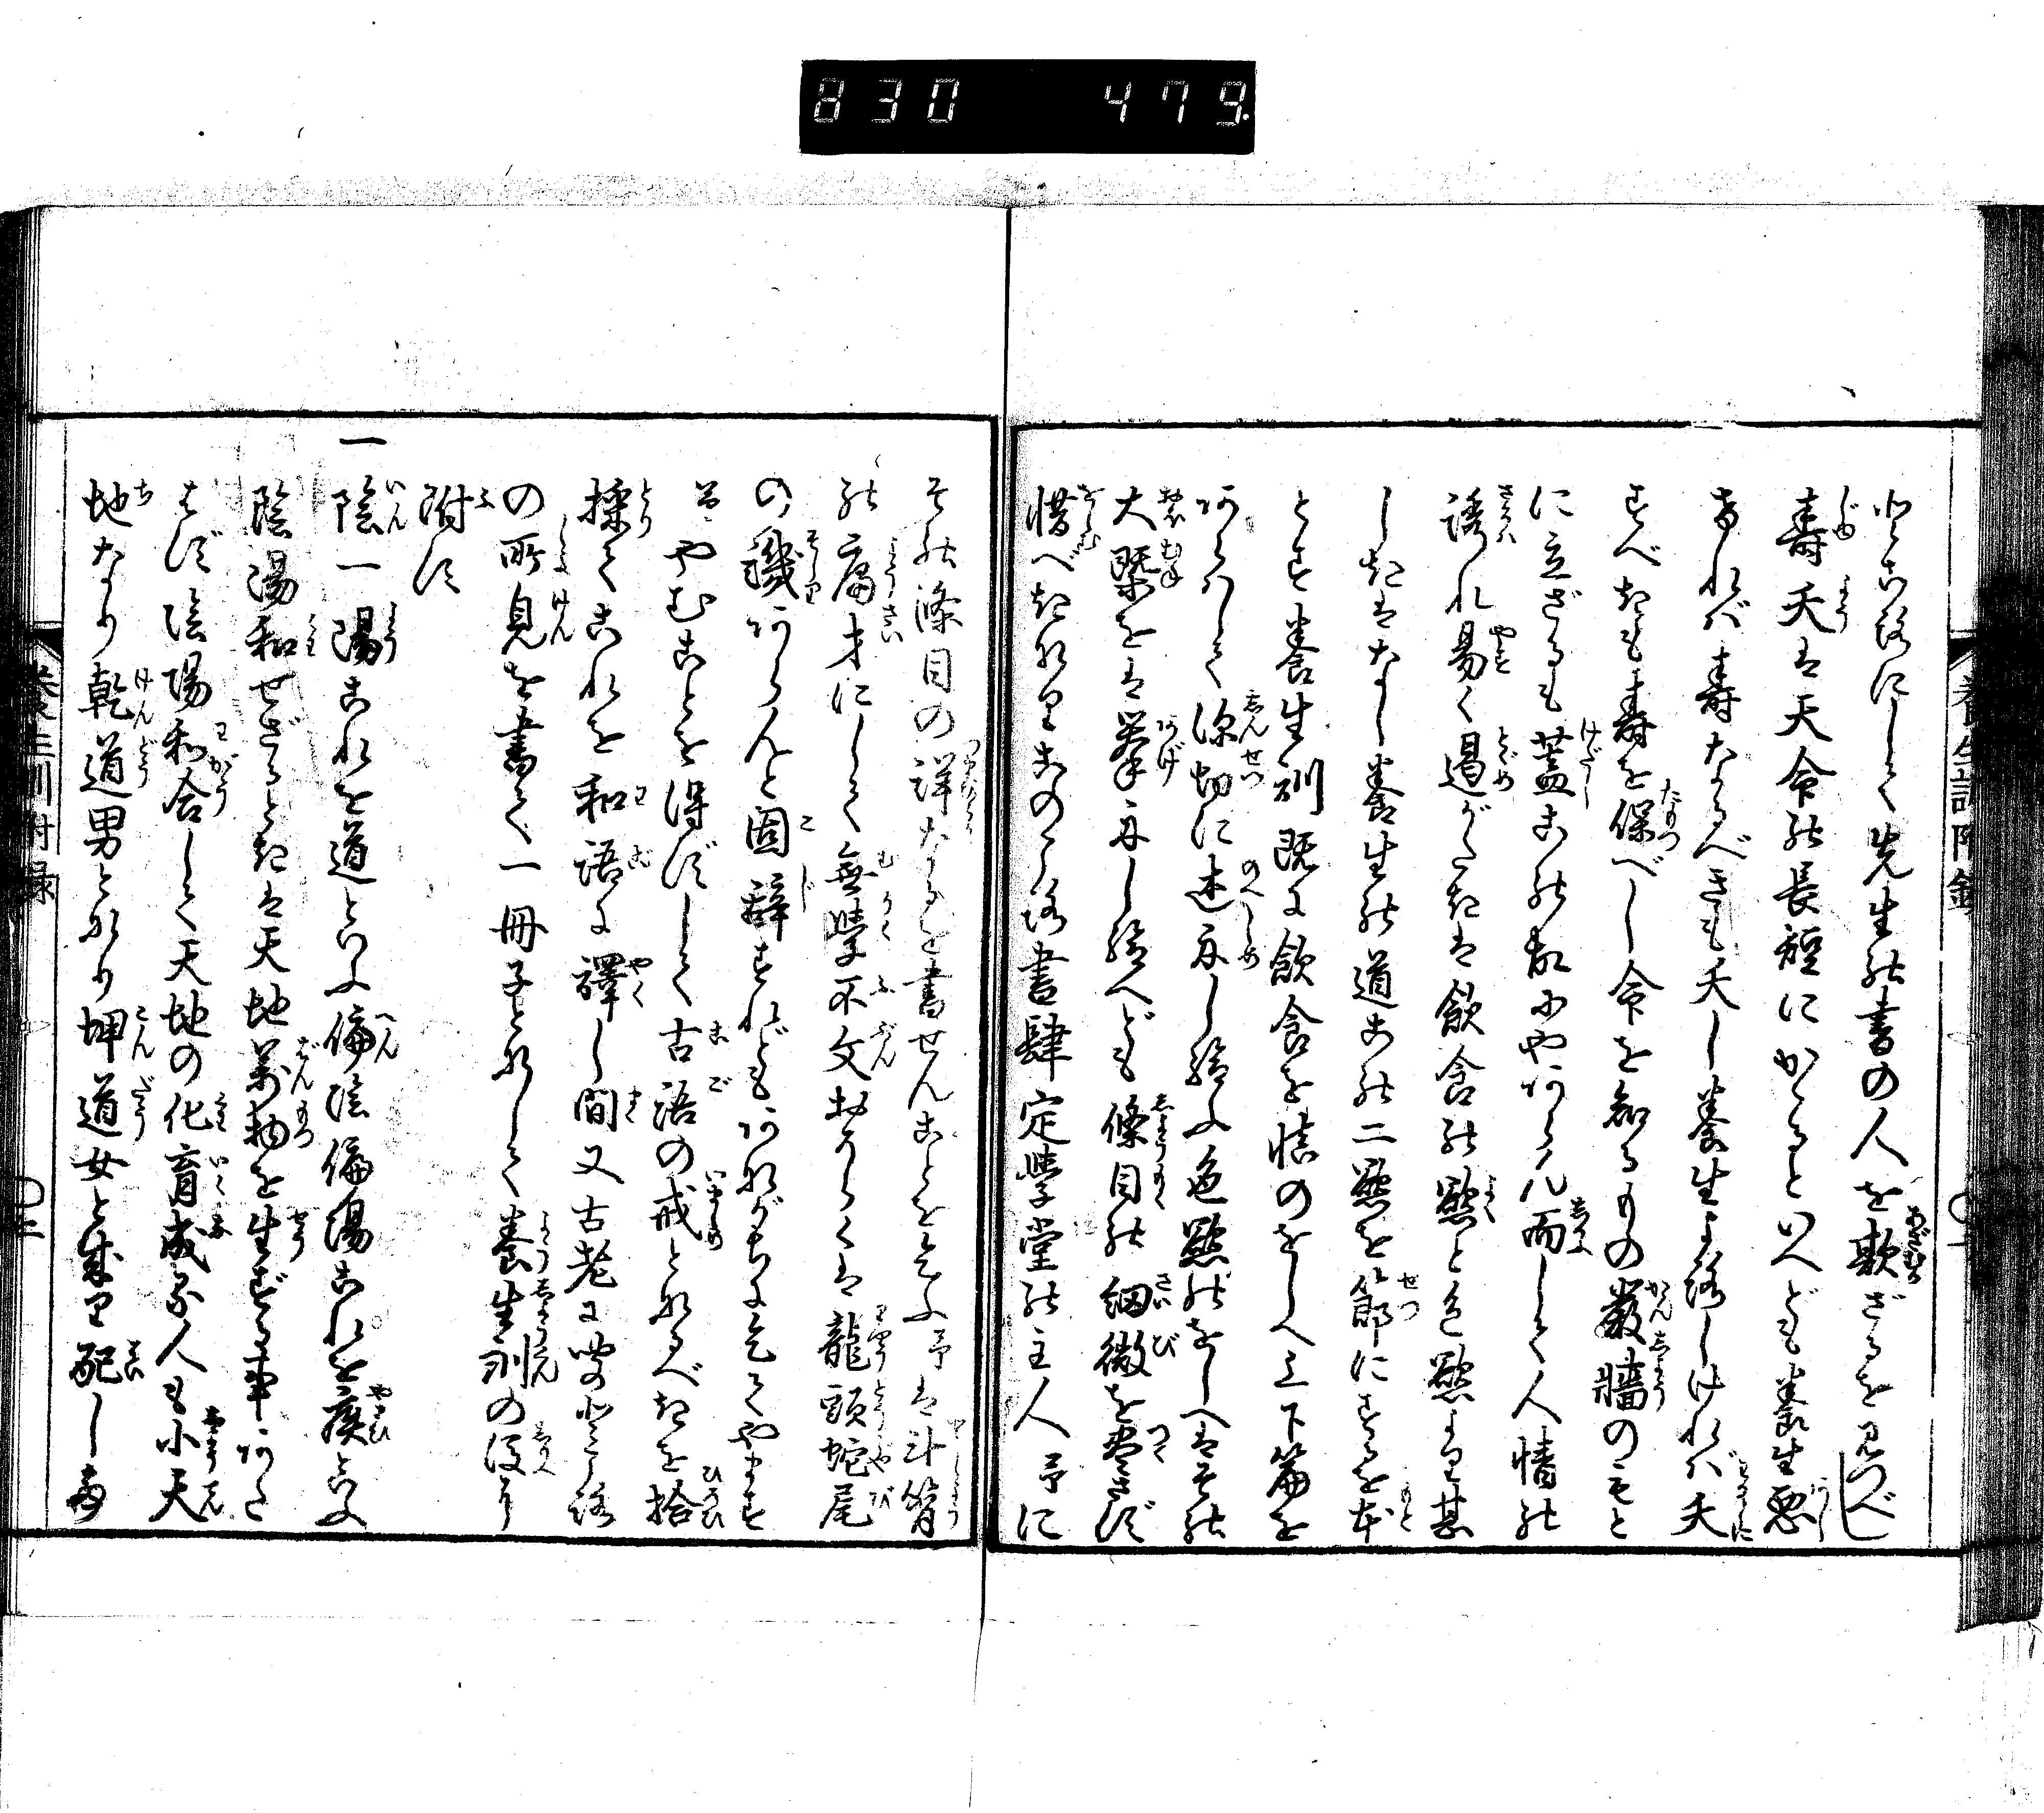 830 479
養生訓附録
ところにして先生の書の人を欺ざるを見つべし
壽夭は天命の長短にかゝるといへども養生悪
ければ壽なるべきも夭し養生よろしければ夭
すべきも壽を保べし命を知るものの巌牆のもと
に立ざるも蓋この故にやあらん而して人情の
誘れ易く遏がたきは飲食の慾と色慾より甚
しきはなし養生の道この二慾を節にするを本
とす養生訓既に飲食を慎のをしへ上下篇を
あらはして深切に述示し給ふ色慾のをしへはその
大槩をは挙示し給へども條目の細微を盡さず
惜べきなりこのころ書肆定學堂の主人予に
その條目の詳なるを書せんことを乞ふ予は斗筲
の庸才にして無學不文おそらくは龍頭蛇尾
の譏あらんと固辞すれどもあながちに乞てやまず
やむことを得ずして古語の戒となるべきを拾
採てこれを和語に譯し間又古老に聞ところ
の所見を書て一冊子となして養生訓の後に
附す
一陰一陽これを道といふ偏陰偏陽これを疾といふ
陰陽和せざるときは天地萬物を生ずる事あた
はず陰陽和合して天地の化育成る人も小天
地なり乾道男となり坤道女と成り配し
養生訓附録